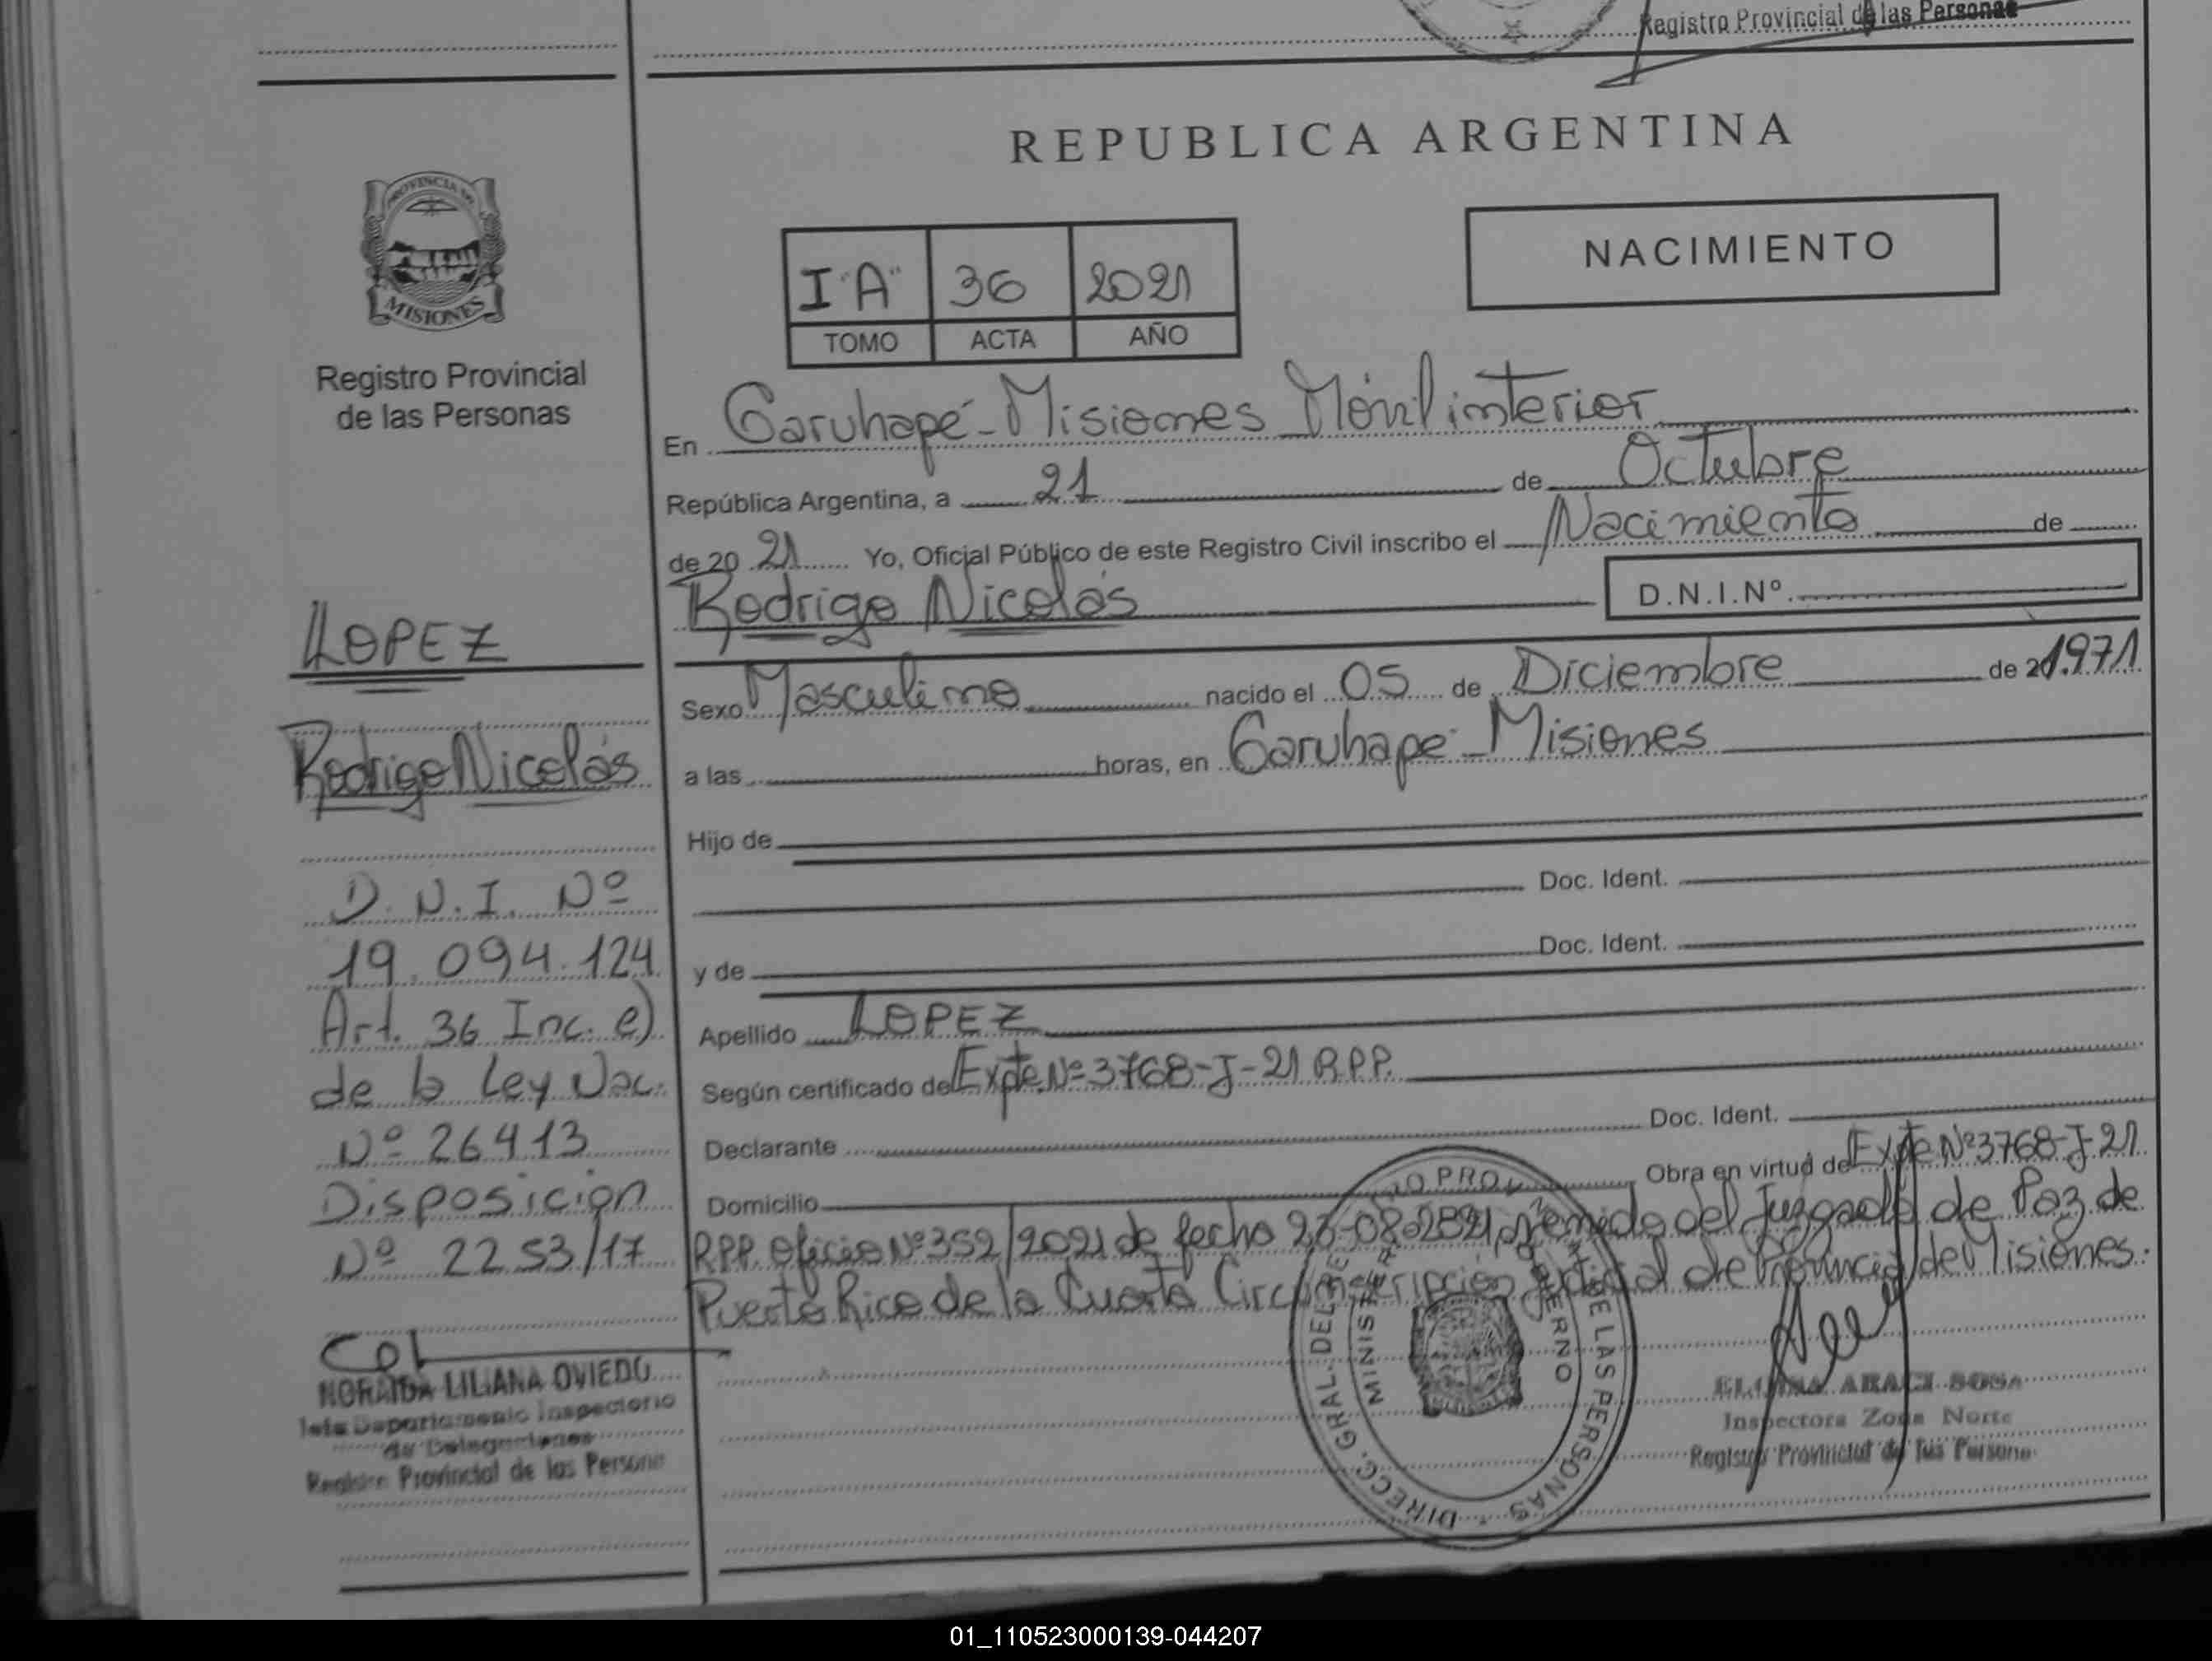 Registro Provincial de las Personas
REPUBLICA ARGENTINA
PROVINCIA DE
MISIONES
Registro Provincial
de las Personas
NACIMIENTO
I "A" 36 2021
TOMO ACTA AÑO
En Garuhapé - Misiones Móvil interior
República Argentina, a 21 de Octubre
de 20 21 Yo, Oficial Público de este Registro Civil inscribo el Nacimiento de
Rodrigo Nicolás D.N.I.Nº
Sexo Masculino nacido el 05 de Diciembre de 2 1.971
a las horas, en Garuhapé - Misiones
Hijo de
Doc. Ident.
y de Doc. Ident.
Apellido LOPEZ
Según certificado de Expte. Nº 3768-J-21 R.P.P.
Declarante Doc. Ident.
Domicilio Obra en virtud de Expte Nº 3768-J-21
R.P.P. Oficio Nº 352/2021 de fecha 26-08-2021, del Juzgado de Paz de
Puerto Rico de la Cuarta Circunscripción Judicial de Provincia de Misiones.
LOPEZ
Rodrigo Nicolás
D.N.I. Nº
19.094.124
Art. 36 Inc. e)
de la Ley Nac.
Nº 26413
Disposición
Nº 2253/17
NORAIDA LILIANA OVIEDO
Jefa Departamento Inspectorio
de Delegaciones
Registro Provincial de las Persona
DIRECC. GRAL. DEL DE LAS PERSONAS
ARACI SOSA
Inspectora Zona Norte
Registro Provincial de las Persona
01_110523000139-044207